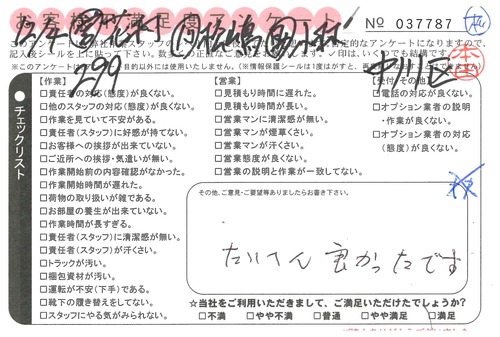 No 037787
記入後シールを上に貼って下さい。
【作業】
□責任者の対応(態度)が良くない。
□他のスタッフの対応(態度)が良くない。
□作業を見ていて不安がある。
□責任者(スタッフ)に好感が持てない。
□お客様への挨拶が出来ていない。
□ご近所への挨拶・気遣いが無い。
□作業開始前の内容確認がなかった。
□作業開始時間が遅れた。
□荷物の取り扱いが雑である。
□お部屋の養生が出来ていない。
□作業時間が長すぎる。
□責任者(スタッフ)に清潔感が無い。
□責任者(スタッフ)が汗くさい。
□トラックが汚い。
□梱包資材が汚い。
□運転が不安(下手)である。
□靴下の履き替えをしてない。
□スタッフにやる気がみられない。
【営業】
□見積もり時間に遅れた。
□見積もり時間が長い。
□営業マンに清潔感が無い。
□営業マンが煙草くさい。
□営業マンが汗くさい。
□営業態度が良くない。
□営業の説明と作業が一致してない。
【受付・その他】
□電話の対応が良くない。
□オプション業者の説明
・作業が良くない。
□オプション業者の対応
(態度)が良くない。
チェックリスト
その他、ご意見・ご要望等ありましたらお書き下さい。
たいへん良かったです
☆当社をご利用いただきまして、ご満足いただけてしょうか?
□不満 □やや不満 □普通 □やや満足 □満足